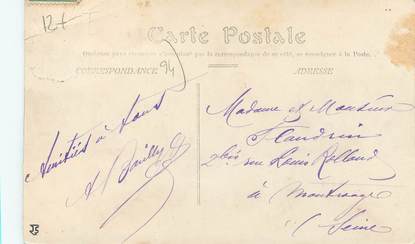 12 f
Carte Postale
Quelques pays étrangers n'acceptent pas la correspondance de ce côté, se renseigner à la Poste.
CORRESPONDANCE
94
ADRESSE
Amitiés à tous
A Bailly
Madame et Monsieur
Flandrin
2 bis rue Louis Rolland
à Montrouge
(Seine